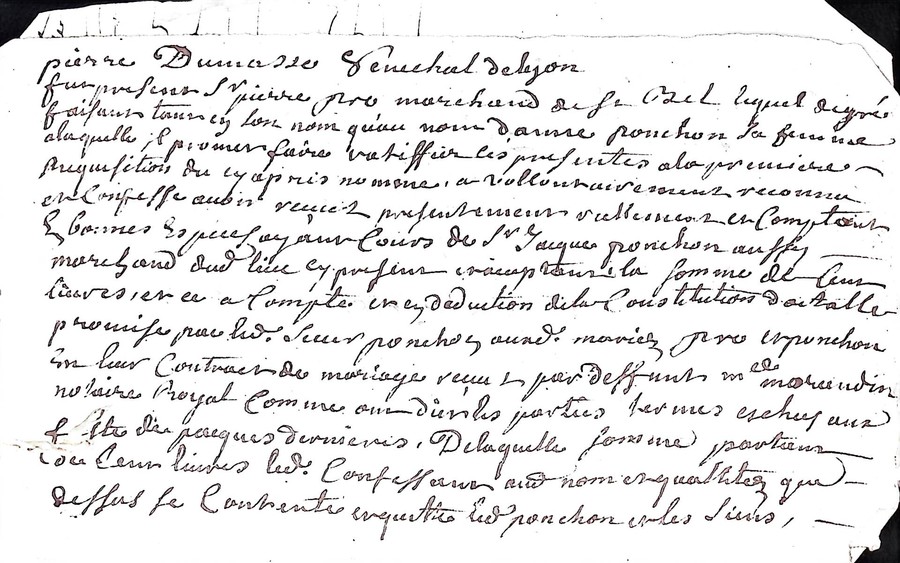 pierre Dumasse Senechal de lyon
fut present Sr pierre pro marchand de St Bel lequel de gré
faisant tant en son nom quau nom danne ponchon sa femme
alaquelle il promet faire ratiffier les presentes ala premiere
requisition du cy apres nomme, a vollontairement reconnu
et Confesse avoir reçeu presentement reellement et Comptant
En bonnes Especes ayant Cours de Sr Jacque ponchon aussy
marchand dud. lieu cy present et acceptant la somme de Cent
livres, et ce a Compte et en deduction de la Constitution dotalle
promise par led. Sieur ponchon auxd. mariez pro et ponchon
En leur Contract de mariage reçeu par deffunt me morandin
notaire Royal Comme ont dit les parties termes escheu aux
feste de pacques dernieres, De laquelle somme
de Cent livres led. Confessant aud nom et quallitez que
dessus se Contente et quitte led ponchon et les siens,